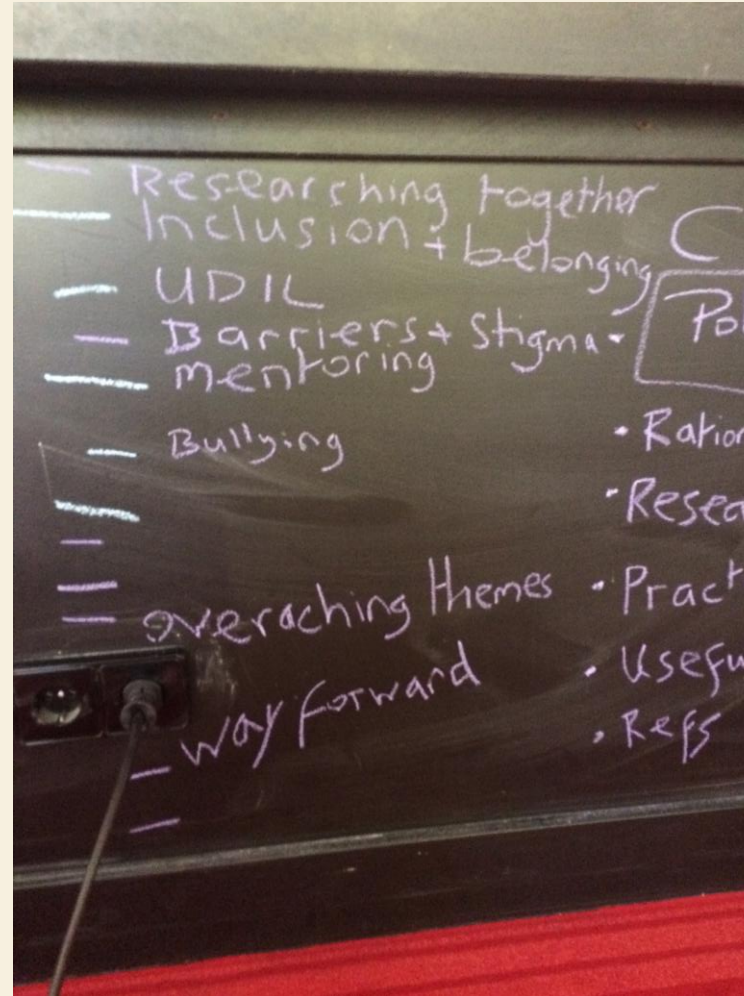 Researching together
Inclusion + belonging
UDIL
Barriers + Stigma
mentoring
Bullying
overaching themes
way forward
C
Po
• Ration
• Resea
• Pract
• Usefu
• Refs